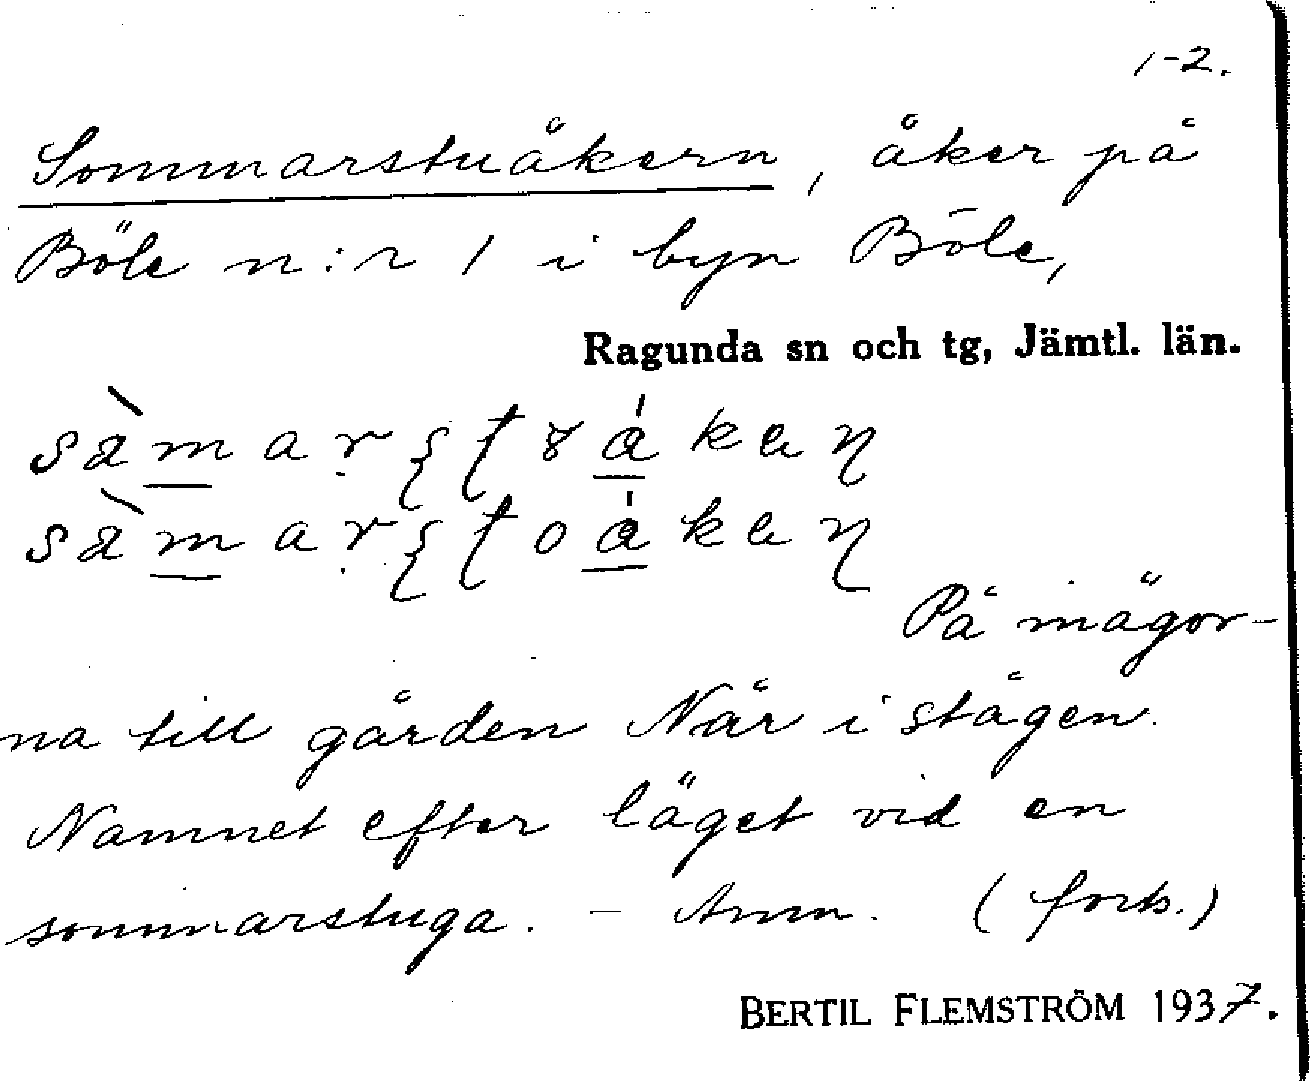 1-2.
Sommarstuåkern, åker på
Böle n:r 1 i byn Böle,
Ragunda sn och tg, Jämtl. län.
På mägor-
na till gården Når i stågen.
Namnet efter läget vid en
sommarstuga. - Anm. (forts.)
BERTIL FLEMSTRÖM 1937.